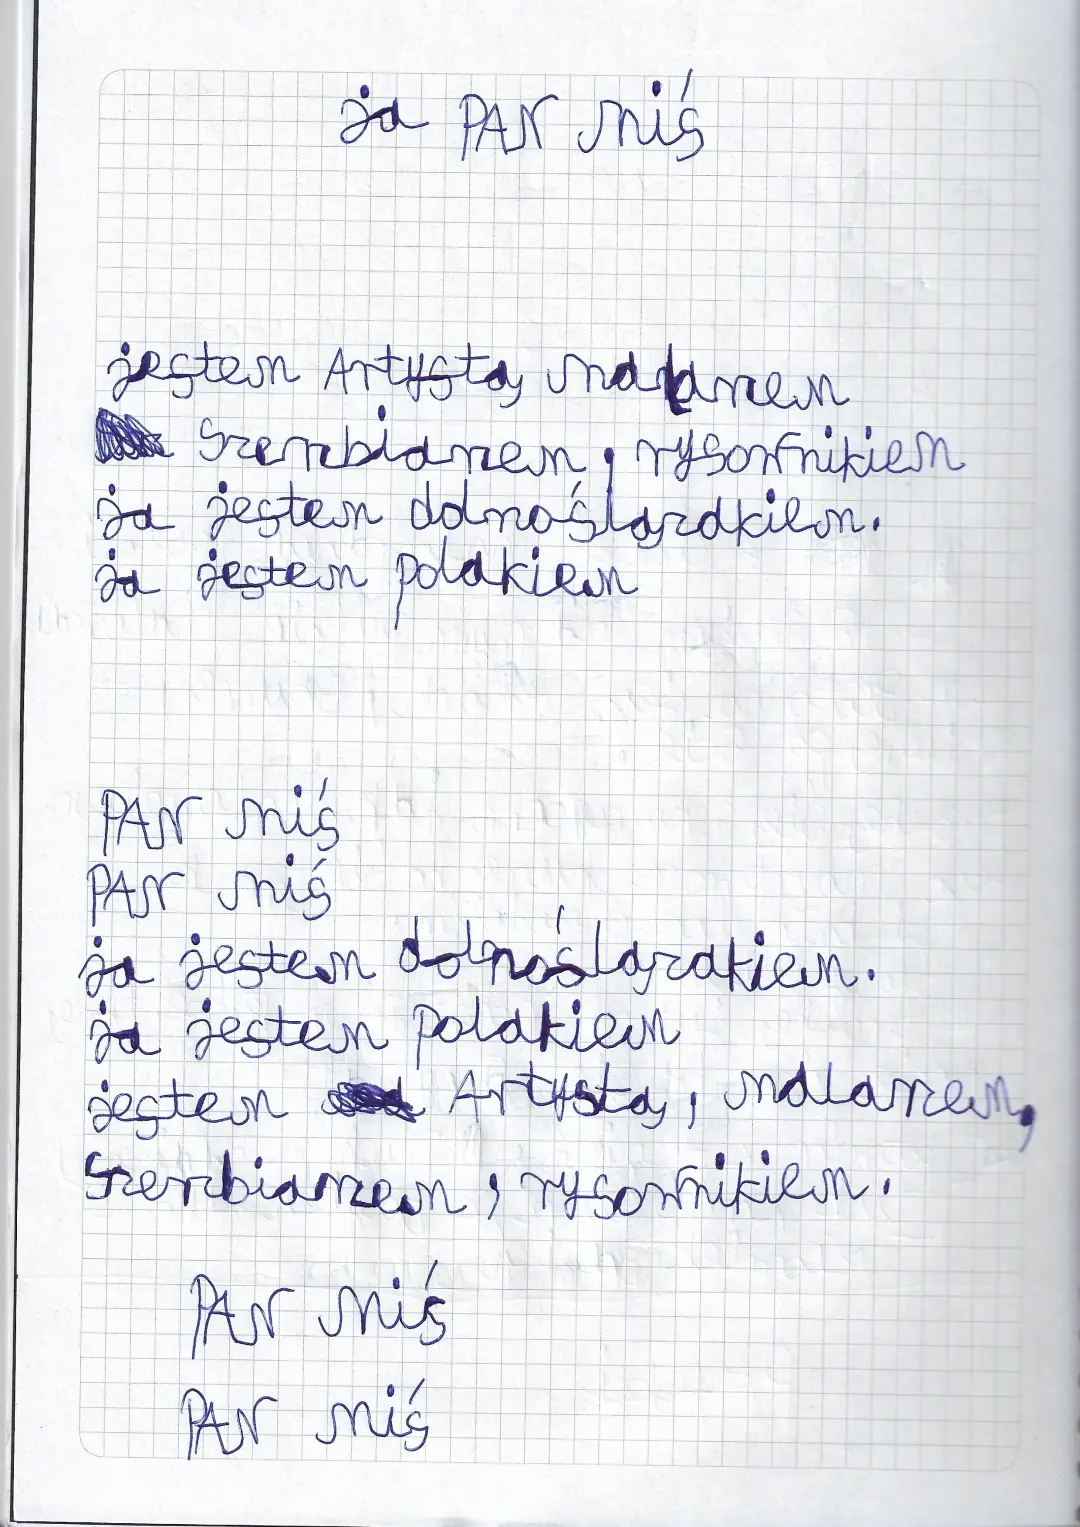 ja PAN miś
jestem Artystą malarzem
rzeźbiarzem, rysownikiem
ja jestem dolnoślązakiem.
ja jestem polakiem
PAN miś
PAN miś
ja jestem dolnoślązakiem.
ja jestem polakiem
jestem Artystą, malarzem,
rzeźbiarzem, rysownikiem.
PAN miś
PAN miś